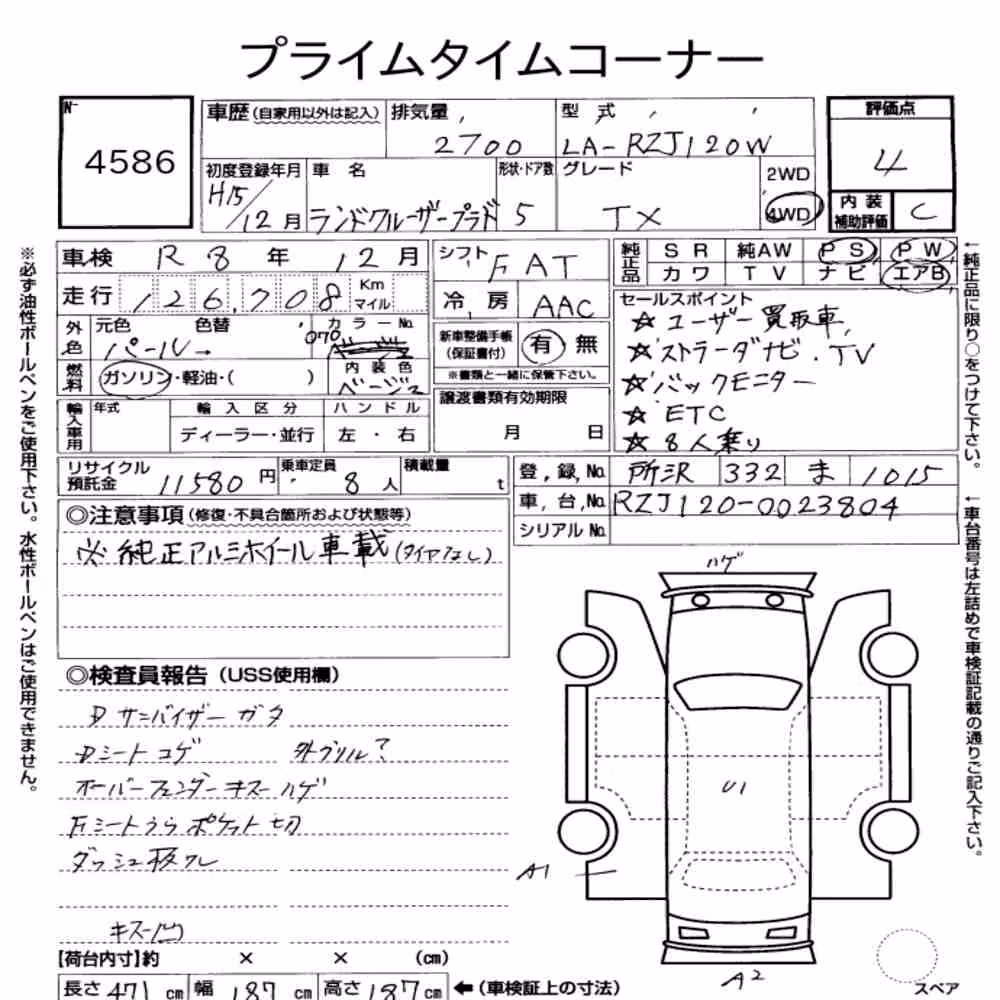 プライムタイムコーナー
No 4586
車歴 (自家用以外は記入) 排気量 2700 型式 LA-RZJ120W
評価点 4
内装補助評価 C
初度登録年月 H15/12月 車名 ランドクルーザープラド 形状・ドア数 5 グレード TX 2WD 4WD
車検 R8年 12月
走行 126,708 Km マイル
外色 元色 パール→ 色替 カラーNo. 070
内装色 ベージュ
燃料 ガソリン・軽油・( )
輸入車用 年式 輸入区分 ディーラー・並行 ハンドル 左・右
シフト FAT
冷房 AAC
新車整備手帳(保証書付) 有 無
※書類と一緒に保管下さい。
譲渡書類有効期限 月 日
純正品 SR 純AW PS PW
カワ TV ナビ エアB
セールスポイント
☆ユーザー買取車
☆ストラーダナビ.TV
☆バックモニター
☆ETC
☆8人乗り
リサイクル預託金 11580円 乗車定員 8人 積載量 t
登録No. 所沢 332 ま 1015
車台No. RZJ120-0023804
シリアルNo.
◎注意事項 (修復・不具合箇所および状態等)
※純正アルミホイール車載(タイヤなし)
◎検査員報告 (USS使用欄)
Dサンバイザーガタ
Dシートコゲ 外グリル?
オーバーフェンダーキズハゲ
Fシートうらポケット切
ダッシュ板ワレ
キズ凹
ハゲ
U1
A1
A2
スペア
【荷台内寸】約 × × (cm)
長さ 471 cm 幅 187 cm 高さ 187 cm ←(車検証上の寸法)
※必ず油性ボールペンをご使用下さい。水性ボールペンはご使用できません。
←純正品に限り○をつけて下さい。
←車台番号は左詰めで車検証記載の通りご記入下さい。